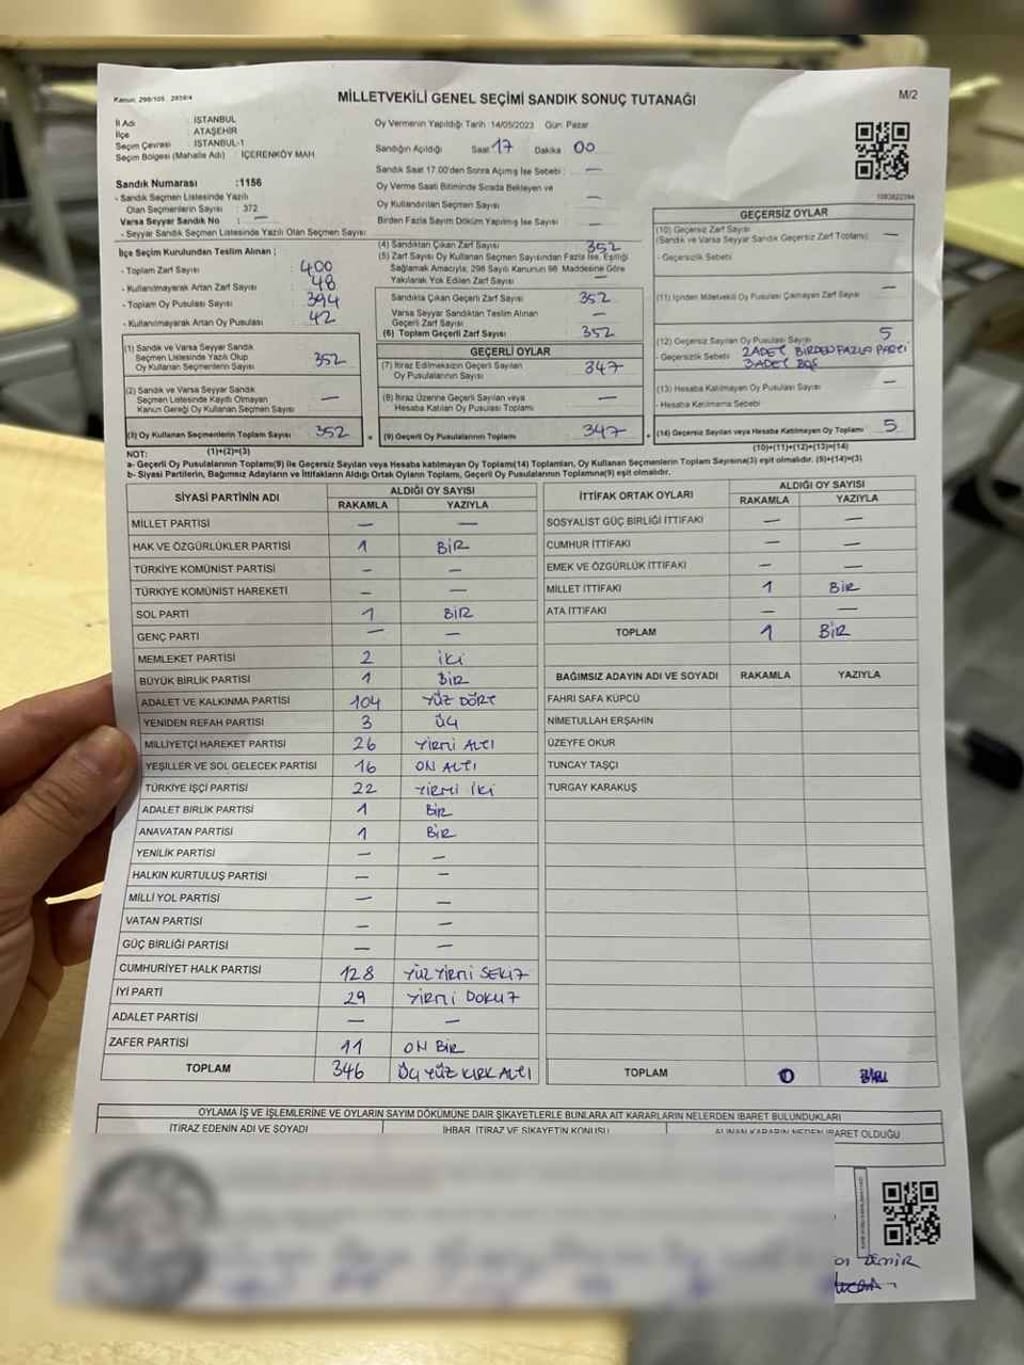 Kanun: 298/105 2839/4
MİLLETVEKİLİ GENEL SEÇİMİ SANDIK SONUÇ TUTANAĞI
M/2
İl Adı : İSTANBUL
İlçe : ATAŞEHİR
Seçim Çevresi : İSTANBUL-1
Seçim Bölgesi (Mahalle Adı) : İÇERENKÖY MAH
Sandık Numarası :1156
- Sandık Seçmen Listesinde Yazılı
Olan Seçmenlerin Sayısı : 372
Varsa Seyyar Sandık No : —
- Seyyar Sandık Seçmen Listesinde Yazılı Olan Seçmen Sayısı:
Oy Vermenin Yapıldığı Tarih :14/05/2023 Gün: Pazar
Sandığın Açıldığı Saat 17 Dakika 00
Sandık Saat 17.00'den Sonra Açımış İse Sebebi : —
Oy Verme Saati Bitiminde Sırada Bekleyen ve
Oy Kullandırılan Seçmen Sayısı : —
Birden Fazla Sayım Döküm Yapılmış İse Sayısı : —
İlçe Seçim Kurulundan Teslim Alınan ;
- Toplam Zarf Sayısı : 400
- Kullanılmayarak Artan Zarf Sayısı : 48
- Toplam Oy Pusulası Sayısı : 394
- Kullanılmayarak Artan Oy Pusulası : 42
(1) Sandık ve Varsa Seyyar Sandık
Seçmen Listesinde Yazılı Olup
Oy Kullanan Seçmenlerin Sayısı : 352
(2) Sandık ve Varsa Seyyar Sandık
Seçmen Listesinde Kayıtlı Olmayan
Kanun Gereği Oy Kullanan Seçmen Sayısı : —
(3) Oy Kullanan Seçmenlerin Toplam Sayısı : 352
(1)+(2)=(3)
(4) Sandıktan Çıkan Zarf Sayısı : 352
(5) Zarf Sayısı Oy Kullanan Seçmen Sayısından Fazla İse, Eşitliği
Sağlamak Amacıyla; 298 Sayılı Kanunun 98. Maddesine Göre
Yakılarak Yok Edilen Zarf Sayısı : —
Sandıkta Çıkan Geçerli Zarf Sayısı : 352
Varsa Seyyar Sandıktan Teslim Alınan
Geçerli Zarf Sayısı : —
(6) Toplam Geçerli Zarf Sayısı : 352
GEÇERLİ OYLAR
(7) İtiraz Edilmeksizin Geçerli Sayılan
Oy Pusulalarının Sayısı : 347
(8) İtiraz Üzerine Geçerli Sayılan veya
Hesaba Katılan Oy Pusulası Toplamı : —
(9) Geçerli Oy Pusulalarının Toplamı : 347
1083822394
GEÇERSİZ OYLAR
(10) Geçersiz Zarf Sayısı : —
(Sandık ve Varsa Seyyar Sandık Geçersiz Zarf Toplamı)
- Geçersizlik Sebebi :
(11) İçinden Milletvekili Oy Pusulası Çıkmayan Zarf Sayısı : —
(12) Geçersiz Sayılan Oy Pusulası Sayısı : 5
- Geçersizlik Sebebi : 2 ADET BİRDEN FAZLA PARTİ
3 ADET BOŞ
(13) Hesaba Katılmayan Oy Pusulası Sayısı : —
- Hesaba Katılmama Sebebi :
(14) Geçersiz Sayılan veya Hesaba Katılmayan Oy Toplamı : 5
(10)+(11)+(12)+(13)=(14)
NOT:
a- Geçerli Oy Pusulalarının Toplamı(9) ile Geçersiz Sayılan veya Hesaba katılmayan Oy Toplam(14) Toplamları, Oy Kullanan Seçmenlerin Toplam Sayısına(3) eşit olmalıdır. (9)+(14)=(3)
b- Siyasi Partilerin, Bağımsız Adayların ve İttifakların Aldığı Ortak Oyların Toplamı, Geçerli Oy Pusulalarının Toplamına(9) eşit olmalıdır.
SİYASİ PARTİNİN ADI ALDIĞI OY SAYISI
RAKAMLA YAZIYLA
MİLLET PARTİSİ — —
HAK VE ÖZGÜRLÜKLER PARTİSİ 1 BİR
TÜRKİYE KOMÜNİST PARTİSİ — —
TÜRKİYE KOMÜNİST HAREKETİ — —
SOL PARTİ 1 BİR
GENÇ PARTİ — —
MEMLEKET PARTİSİ 2 İKİ
BÜYÜK BİRLİK PARTİSİ 1 BİR
ADALET VE KALKINMA PARTİSİ 104 YÜZ DÖRT
YENİDEN REFAH PARTİSİ 3 ÜÇ
MİLLİYETÇİ HAREKET PARTİSİ 26 YİRMİ ALTI
YEŞİLLER VE SOL GELECEK PARTİSİ 16 ON ALTI
TÜRKİYE İŞÇİ PARTİSİ 22 YİRMİ İKİ
ADALET BİRLİK PARTİSİ 1 BİR
ANAVATAN PARTİSİ 1 BİR
YENİLİK PARTİSİ — —
HALKIN KURTULUŞ PARTİSİ — —
MİLLİ YOL PARTİSİ — —
VATAN PARTİSİ — —
GÜÇ BİRLİĞİ PARTİSİ — —
CUMHURİYET HALK PARTİSİ 128 YÜZ YİRMİ SEKİZ
İYİ PARTİ 29 YİRMİ DOKUZ
ADALET PARTİSİ — —
ZAFER PARTİSİ 11 ON BİR
TOPLAM 346 ÜÇ YÜZ KIRK ALTI
İTTİFAK ORTAK OYLARI ALDIĞI OY SAYISI
RAKAMLA YAZIYLA
SOSYALİST GÜÇ BİRLİĞİ İTTİFAKI — —
CUMHUR İTTİFAKI — —
EMEK VE ÖZGÜRLÜK İTTİFAKI — —
MİLLET İTTİFAKI 1 BİR
ATA İTTİFAKI — —
TOPLAM 1 BİR
BAĞIMSIZ ADAYIN ADI VE SOYADI RAKAMLA YAZIYLA
FAHRİ SAFA KÜPCÜ
NİMETULLAH ERŞAHİN
ÜZEYFE OKUR
TUNCAY TAŞÇI
TURGAY KARAKUŞ
TOPLAM 0
OYLAMA İŞ VE İŞLEMLERİNE VE OYLARIN SAYIM DÖKÜMÜNE DAİR ŞİKAYETLERLE BUNLARA AİT KARARLARIN NELERDEN İBARET BULUNDUKLARI
İTİRAZ EDENİN ADI VE SOYADI İHBAR, İTİRAZ VE ŞİKAYETİN KONUSU ALINAN KARARIN NEDEN İBARET OLDUĞU